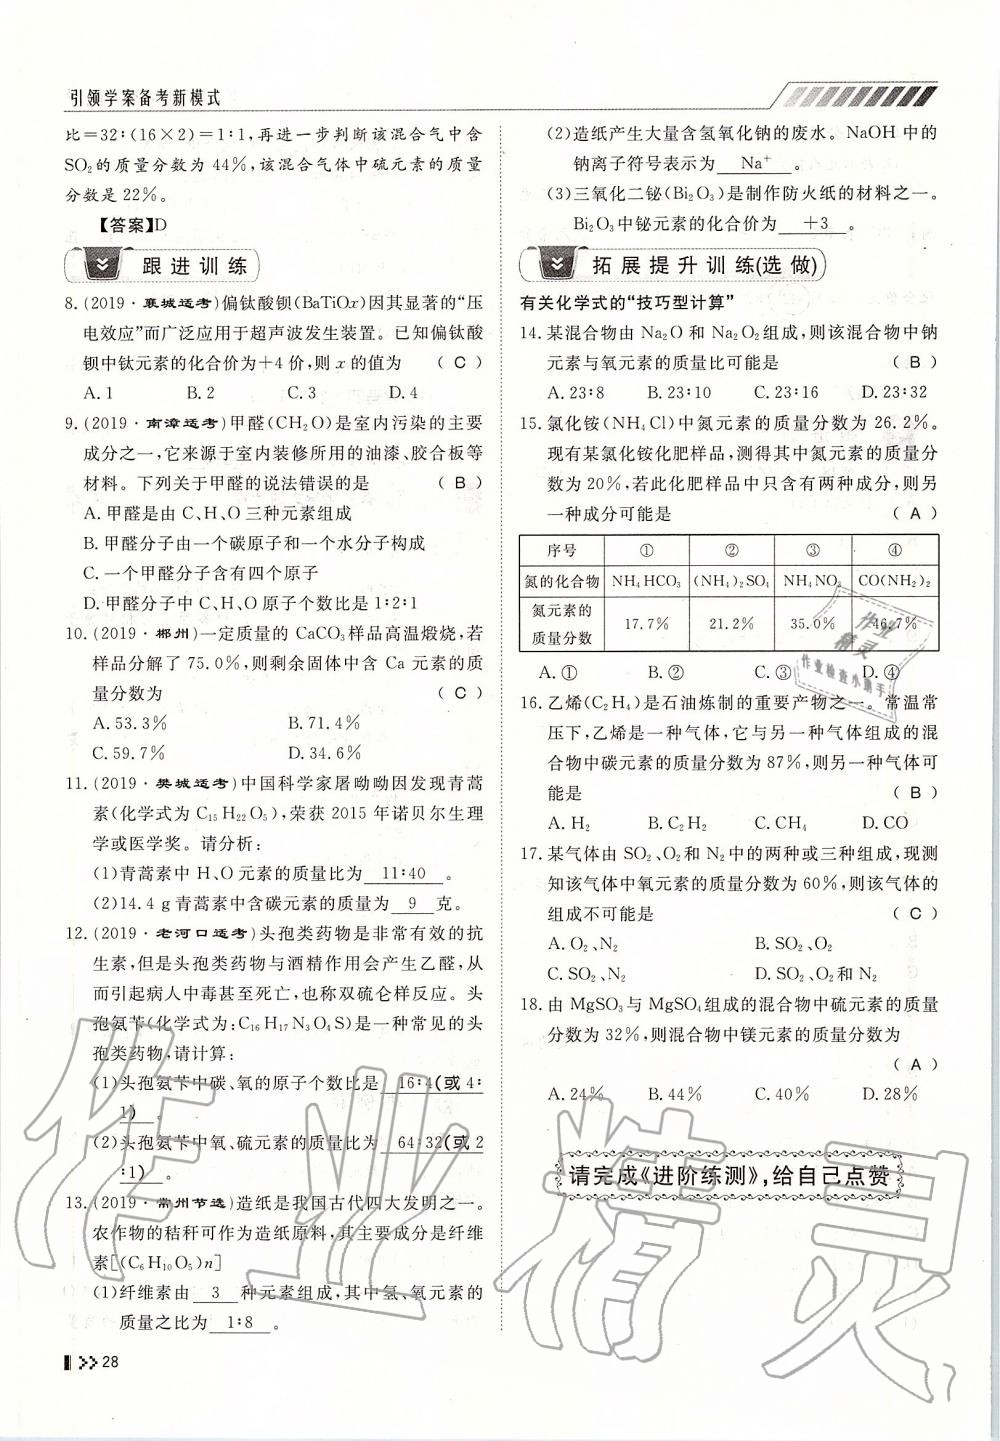 引领学案备考新模式
比＝32∶(16×2)＝1∶1,再进一步判断该混合气中含
SO₂的质量分数为 44％,该混合气体中硫元素的质量
分数是 22％。
【答案】D
跟进训练
8.(2019·襄城适考)偏钛酸钡(BaTiOx)因其显著的“压
电效应”而广泛应用于超声波发生装置。已知偏钛酸
钡中钛元素的化合价为＋4 价,则 x 的值为 ( C )
A.1 B.2 C.3 D.4
9.(2019·南漳适考)甲醛(CH₂O)是室内污染的主要
成分之一,它来源于室内装修所用的油漆、胶合板等
材料。下列关于甲醛的说法错误的是 ( B )
A.甲醛是由 C、H、O 三种元素组成
B.甲醛分子由一个碳原子和一个水分子构成
C.一个甲醛分子含有四个原子
D.甲醛分子中 C、H、O 原子个数比是 1∶2∶1
10.(2019·郴州)一定质量的 CaCO₃样品高温煅烧,若
样品分解了 75.0％,则剩余固体中含 Ca 元素的质
量分数为 ( C )
A.53.3％ B.71.4％
C.59.7％ D.34.6％
11.(2019·樊城适考)中国科学家屠呦呦因发现青蒿
素(化学式为 C₁₅H₂₂O₅),荣获 2015 年诺贝尔生理
学或医学奖。请分析:
(1)青蒿素中 H、O 元素的质量比为 11∶40 。
(2)14.4 g 青蒿素中含碳元素的质量为 9 克。
12.(2019·老河口适考)头孢类药物是非常有效的抗
生素,但是头孢类药物与酒精作用会产生乙醛,从
而引起病人中毒甚至死亡,也称双硫仑样反应。头
孢氨苄(化学式为:C₁₆H₁₇N₃O₄S)是一种常见的头
孢类药物,请计算:
(1)头孢氨苄中碳、氧的原子个数比是 16∶4(或 4∶
1) 。
(2)头孢氨苄中氧、硫元素的质量比为 64∶32(或 2
∶1) 。
13.(2019·常州节选)造纸是我国古代四大发明之一。
农作物的秸秆可作为造纸原料,其主要成分是纤维
素[(C₆H₁₀O₅)n]
(1)纤维素由 3 种元素组成,其中氢、氧元素的
质量之比为 1∶8 。
28
(2)造纸产生大量含氢氧化钠的废水。NaOH 中的
钠离子符号表示为 Na⁺ 。
(3)三氧化二铋(Bi₂O₃)是制作防火纸的材料之一。
Bi₂O₃中铋元素的化合价为 ＋3 。
拓展提升训练(选做)
有关化学式的“技巧型计算”
14.某混合物由 Na₂O 和 Na₂O₂组成,则该混合物中钠
元素与氧元素的质量比可能是 ( B )
A.23∶8 B.23∶10 C.23∶16 D.23∶32
15.氯化铵(NH₄Cl)中氮元素的质量分数为 26.2％。
现有某氯化铵化肥样品,测得其中氮元素的质量分
数为 20％,若此化肥样品中只含有两种成分,则另
一种成分可能是 ( A )
序号 ① ② ③ ④
氮的化合物 NH₄HCO₃ (NH₄)₂SO₄ NH₄NO₃ CO(NH₂)₂
氮元素的
质量分数 17.7％ 21.2％ 35.0％ 46.7％
A.① B.② C.③ D.④
16.乙烯(C₂H₄)是石油炼制的重要产物之一。常温常
压下,乙烯是一种气体,它与另一种气体组成的混
合物中碳元素的质量分数为 87％,则另一种气体可
能是 ( B )
A.H₂ B.C₂H₂ C.CH₄ D.CO
17.某气体由 SO₂、O₂和 N₂中的两种或三种组成,现测
知该气体中氧元素的质量分数为 60％,则该气体的
组成不可能是 ( C )
A.O₂、N₂ B.SO₂、O₂
C.SO₂、N₂ D.SO₂、O₂和 N₂
18.由 MgSO₃与 MgSO₄组成的混合物中硫元素的质量
分数为 32％,则混合物中镁元素的质量分数为
( A )
A.24％ B.44％ C.40％ D.28％
请完成《进阶练测》,给自己点赞
作业精灵
作业
精灵
作业检查小助手